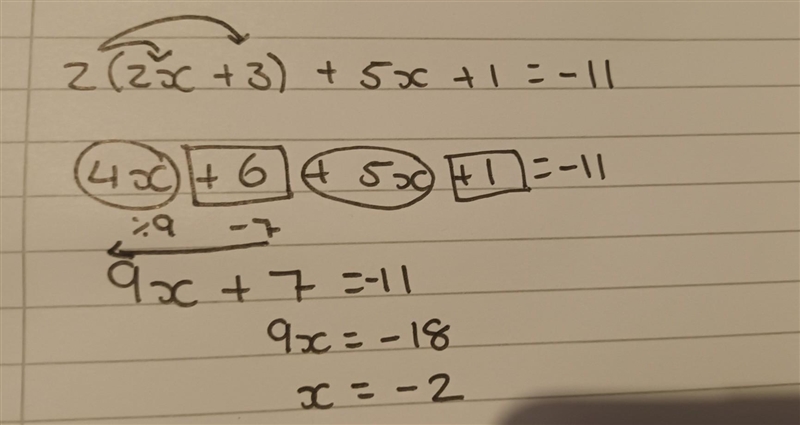 2(2x + 3) + 5x + 1 = -11
4x + 6 + 5x + 1 = -11
÷9 -7
9x + 7 = -11
9x = -18
x = -2